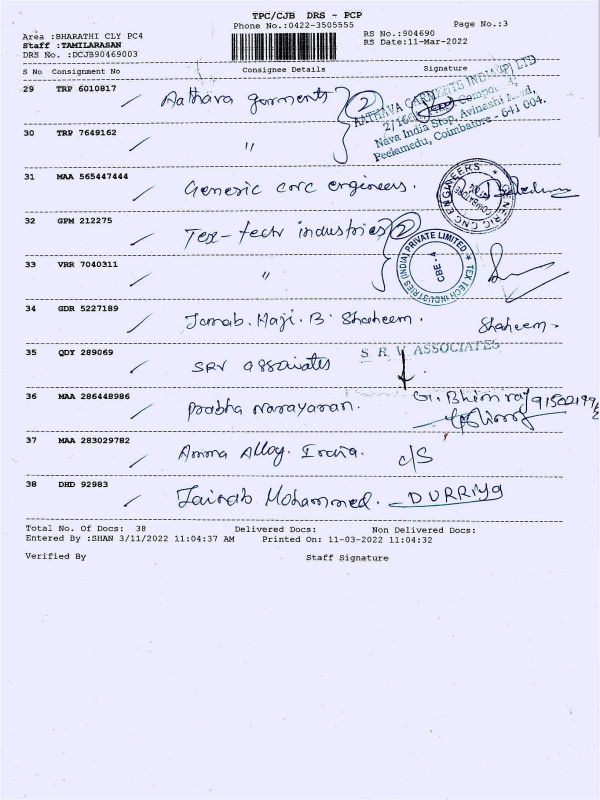 TPC/CJB DRS - PCP
Phone No.:0422-3505555
Page No.:3
Area :BHARATHI CLY PC4
RS No.:904690
Staff :TAMILARASAN
RS Date:11-Mar-2022
DRS No. :DCJB90469003
S No Consignment No Consignee Details Signature
29 TRP 6010817 Aathava garments 2
AATHAVA GARMENTS INDIA (P) LTD
Nava India Stop, Avinashi Road,
Peelamedu, Coimbatore - 641 004.
30 TRP 7649162 "
31 MAA 565447444 Generic cnc engineers.
GENERIC CNC ENGINEERS
32 GPM 212275 Tex-tech industries 2
TEX TECH INDUSTRIES (INDIA) PRIVATE LIMITED
CBE -4
33 VRR 7040311 "
34 GDR 5227189 Janab. Haji. B. Shaheem. Shaheem
35 QDY 289069 SRV associates S R V ASSOCIATES
36 MAA 286448986 Prabha Narayanan. G. Bhimraj
37 MAA 283029782 Amma Alloy. India. c/s
38 DHD 92983 Zainab Mohammed. DURRIYA
Total No. Of Docs: 38 Delivered Docs: Non Delivered Docs:
Entered By :SHAN 3/11/2022 11:04:37 AM Printed On: 11-03-2022 11:04:32
Verified By Staff Signature